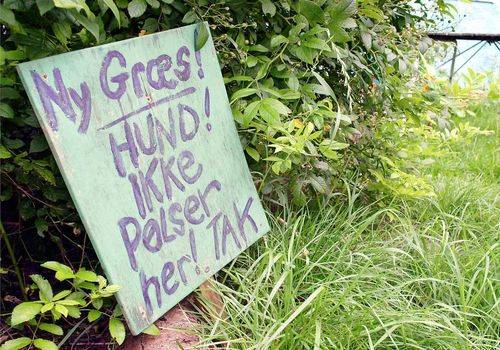 Ny Græs!
HUND!
IKKe
Pølser
her! TAK